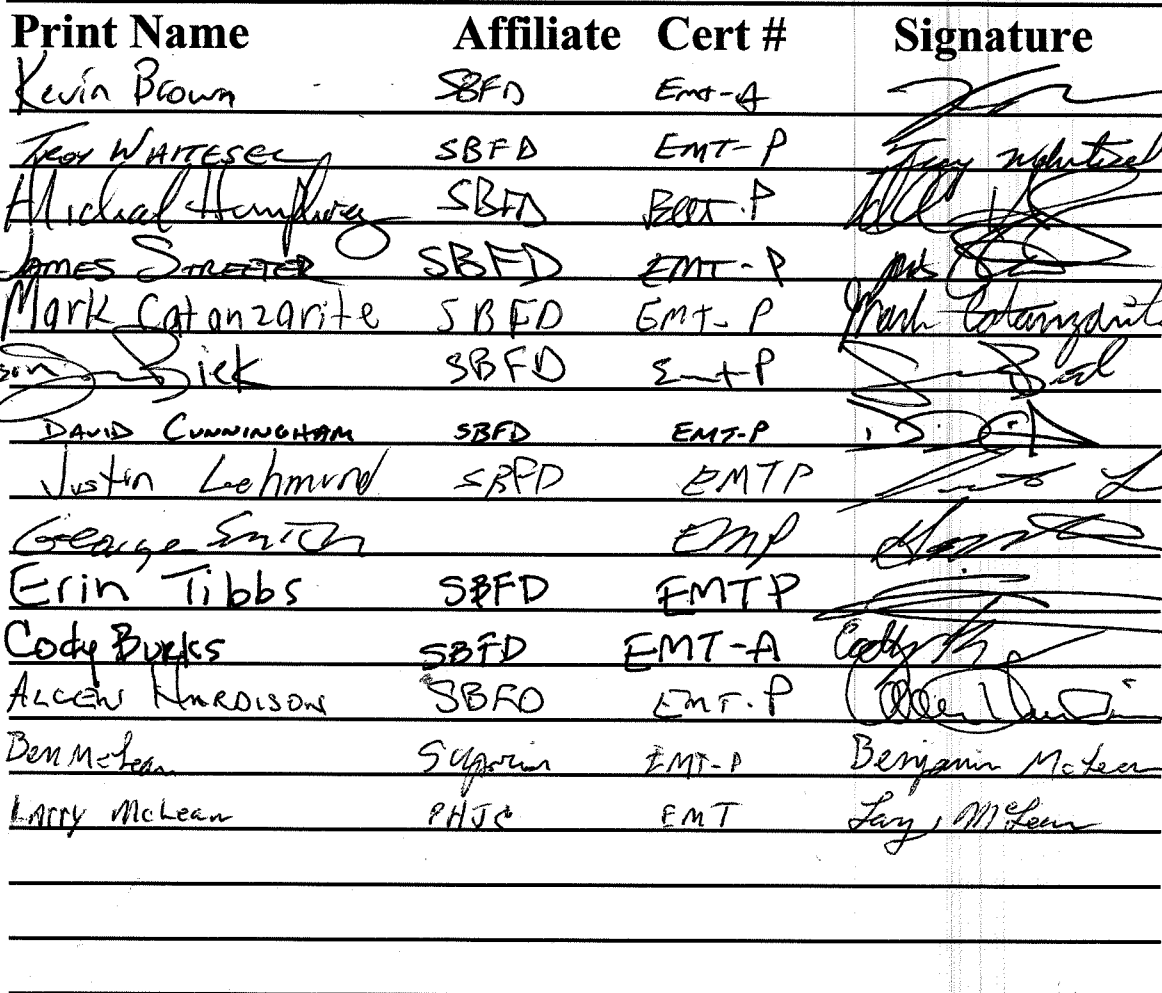 Print Name Affiliate Cert # Signature
Kevin Brown SBFD Emt-A
Troy WHITESEL SBFD EMT-P Troy
Michael Humphrey SBFD P
JAMES STREETER SBFD EMT-P
Mark Catanzarite SBFD Emt-P Mark Catanzarite
Bick SBFD Emt-P
DAVID CUNNINGHAM SBFD EMT-P
Justin Lehmund SBFD EMTP
George Smith EMP
Erin Tibbs SBFD EMTP
Cody Burks SBFD EMT-A Cody
ALLEN HARDISON SBFD EMT-P Allen
Ben McLean Superior EMT-P Benjamin McLean
Larry McLean PHJC EMT Larry McLean